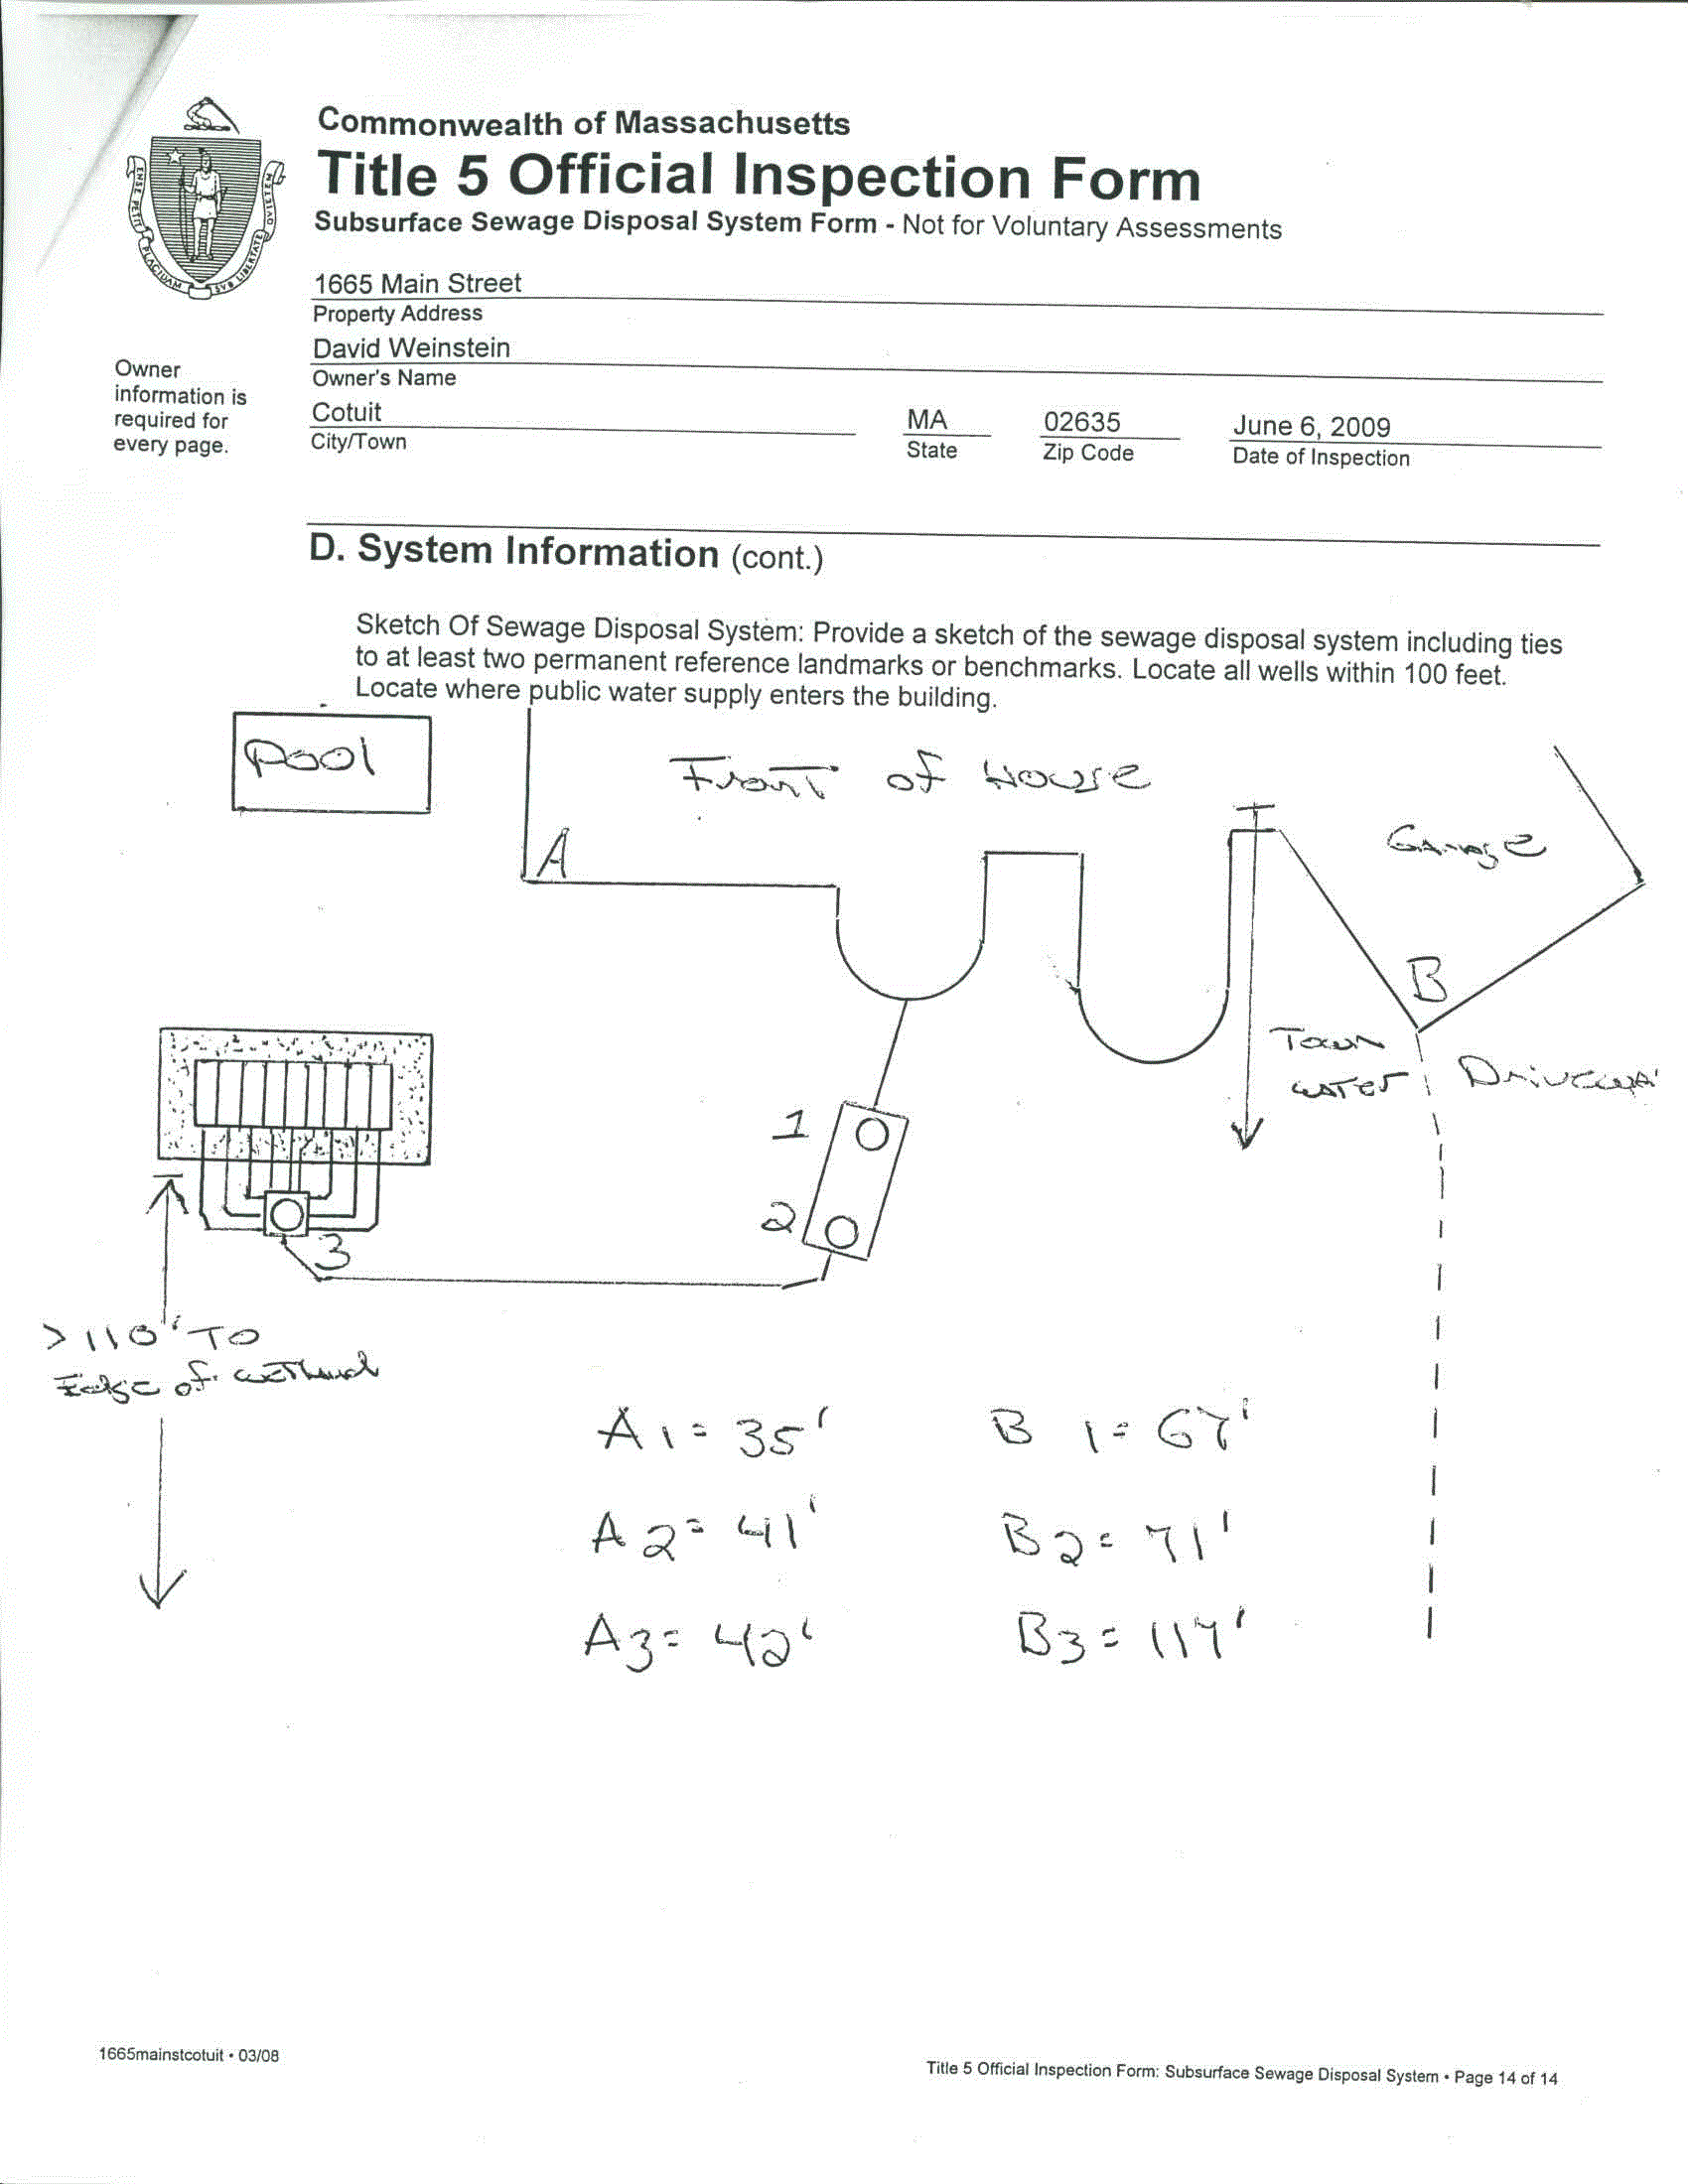 Commonwealth of Massachusetts
Title 5 Official Inspection Form
Subsurface Sewage Disposal System Form - Not for Voluntary Assessments
ENSE PETIT PLACIDAM SVB LIBERTATE QVIETEM
1665 Main Street
Property Address
David Weinstein
Owner's Name
Owner
information is
required for
every page.
Cotuit MA 02635 June 6, 2009
City/Town State Zip Code Date of Inspection
D. System Information (cont.)
Sketch Of Sewage Disposal System: Provide a sketch of the sewage disposal system including ties
to at least two permanent reference landmarks or benchmarks. Locate all wells within 100 feet.
Locate where public water supply enters the building.
Pool
Front of House
Garage
A
B
Town
water
Driveway
1
2
3
>110' To
Edge of wetland
A1 = 35' B1 = 67'
A2 = 41' B2 = 71'
A3 = 42' B3 = 117'
1665mainstcotuit • 03/08
Title 5 Official Inspection Form: Subsurface Sewage Disposal System • Page 14 of 14